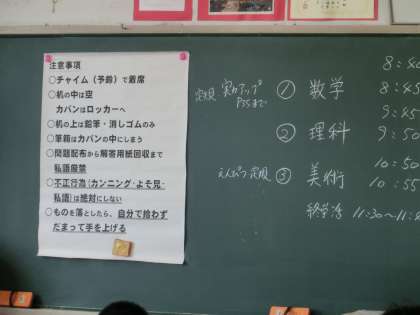 注意事項
○チャイム（予鈴）で着席
○机の中は空
カバンはロッカーへ
○机の上は鉛筆・消しゴムのみ
○筆箱はカバンの中にしまう
○問題配布から解答用紙回収まで
私語厳禁
○不正行為（カンニング・よそ見・
私語）は絶対にしない
○ものを落としたら、自分で拾わず
だまって手を上げる
8:40
定規 実力アップ ① 数学 8:45
P55まで
9:45
② 理科 9:50
10:50
えんぴつ、定規 ③ 美術 10:55
終学活 11:30～11: